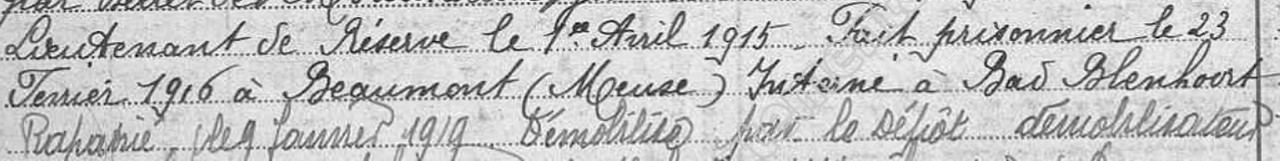 Lieutenant de Réserve le 1er Avril 1915. Fait prisonnier le 23
Fevrier 1916 à Beaumont (Meuse) Interné à Bad Blenhorst
Rapatrié, le 9 Janvier 1919. Démobilisé par le Dépôt démobilisateur